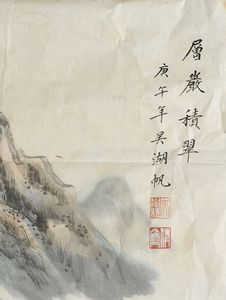 層巖積翠
庚午年吴湖帆